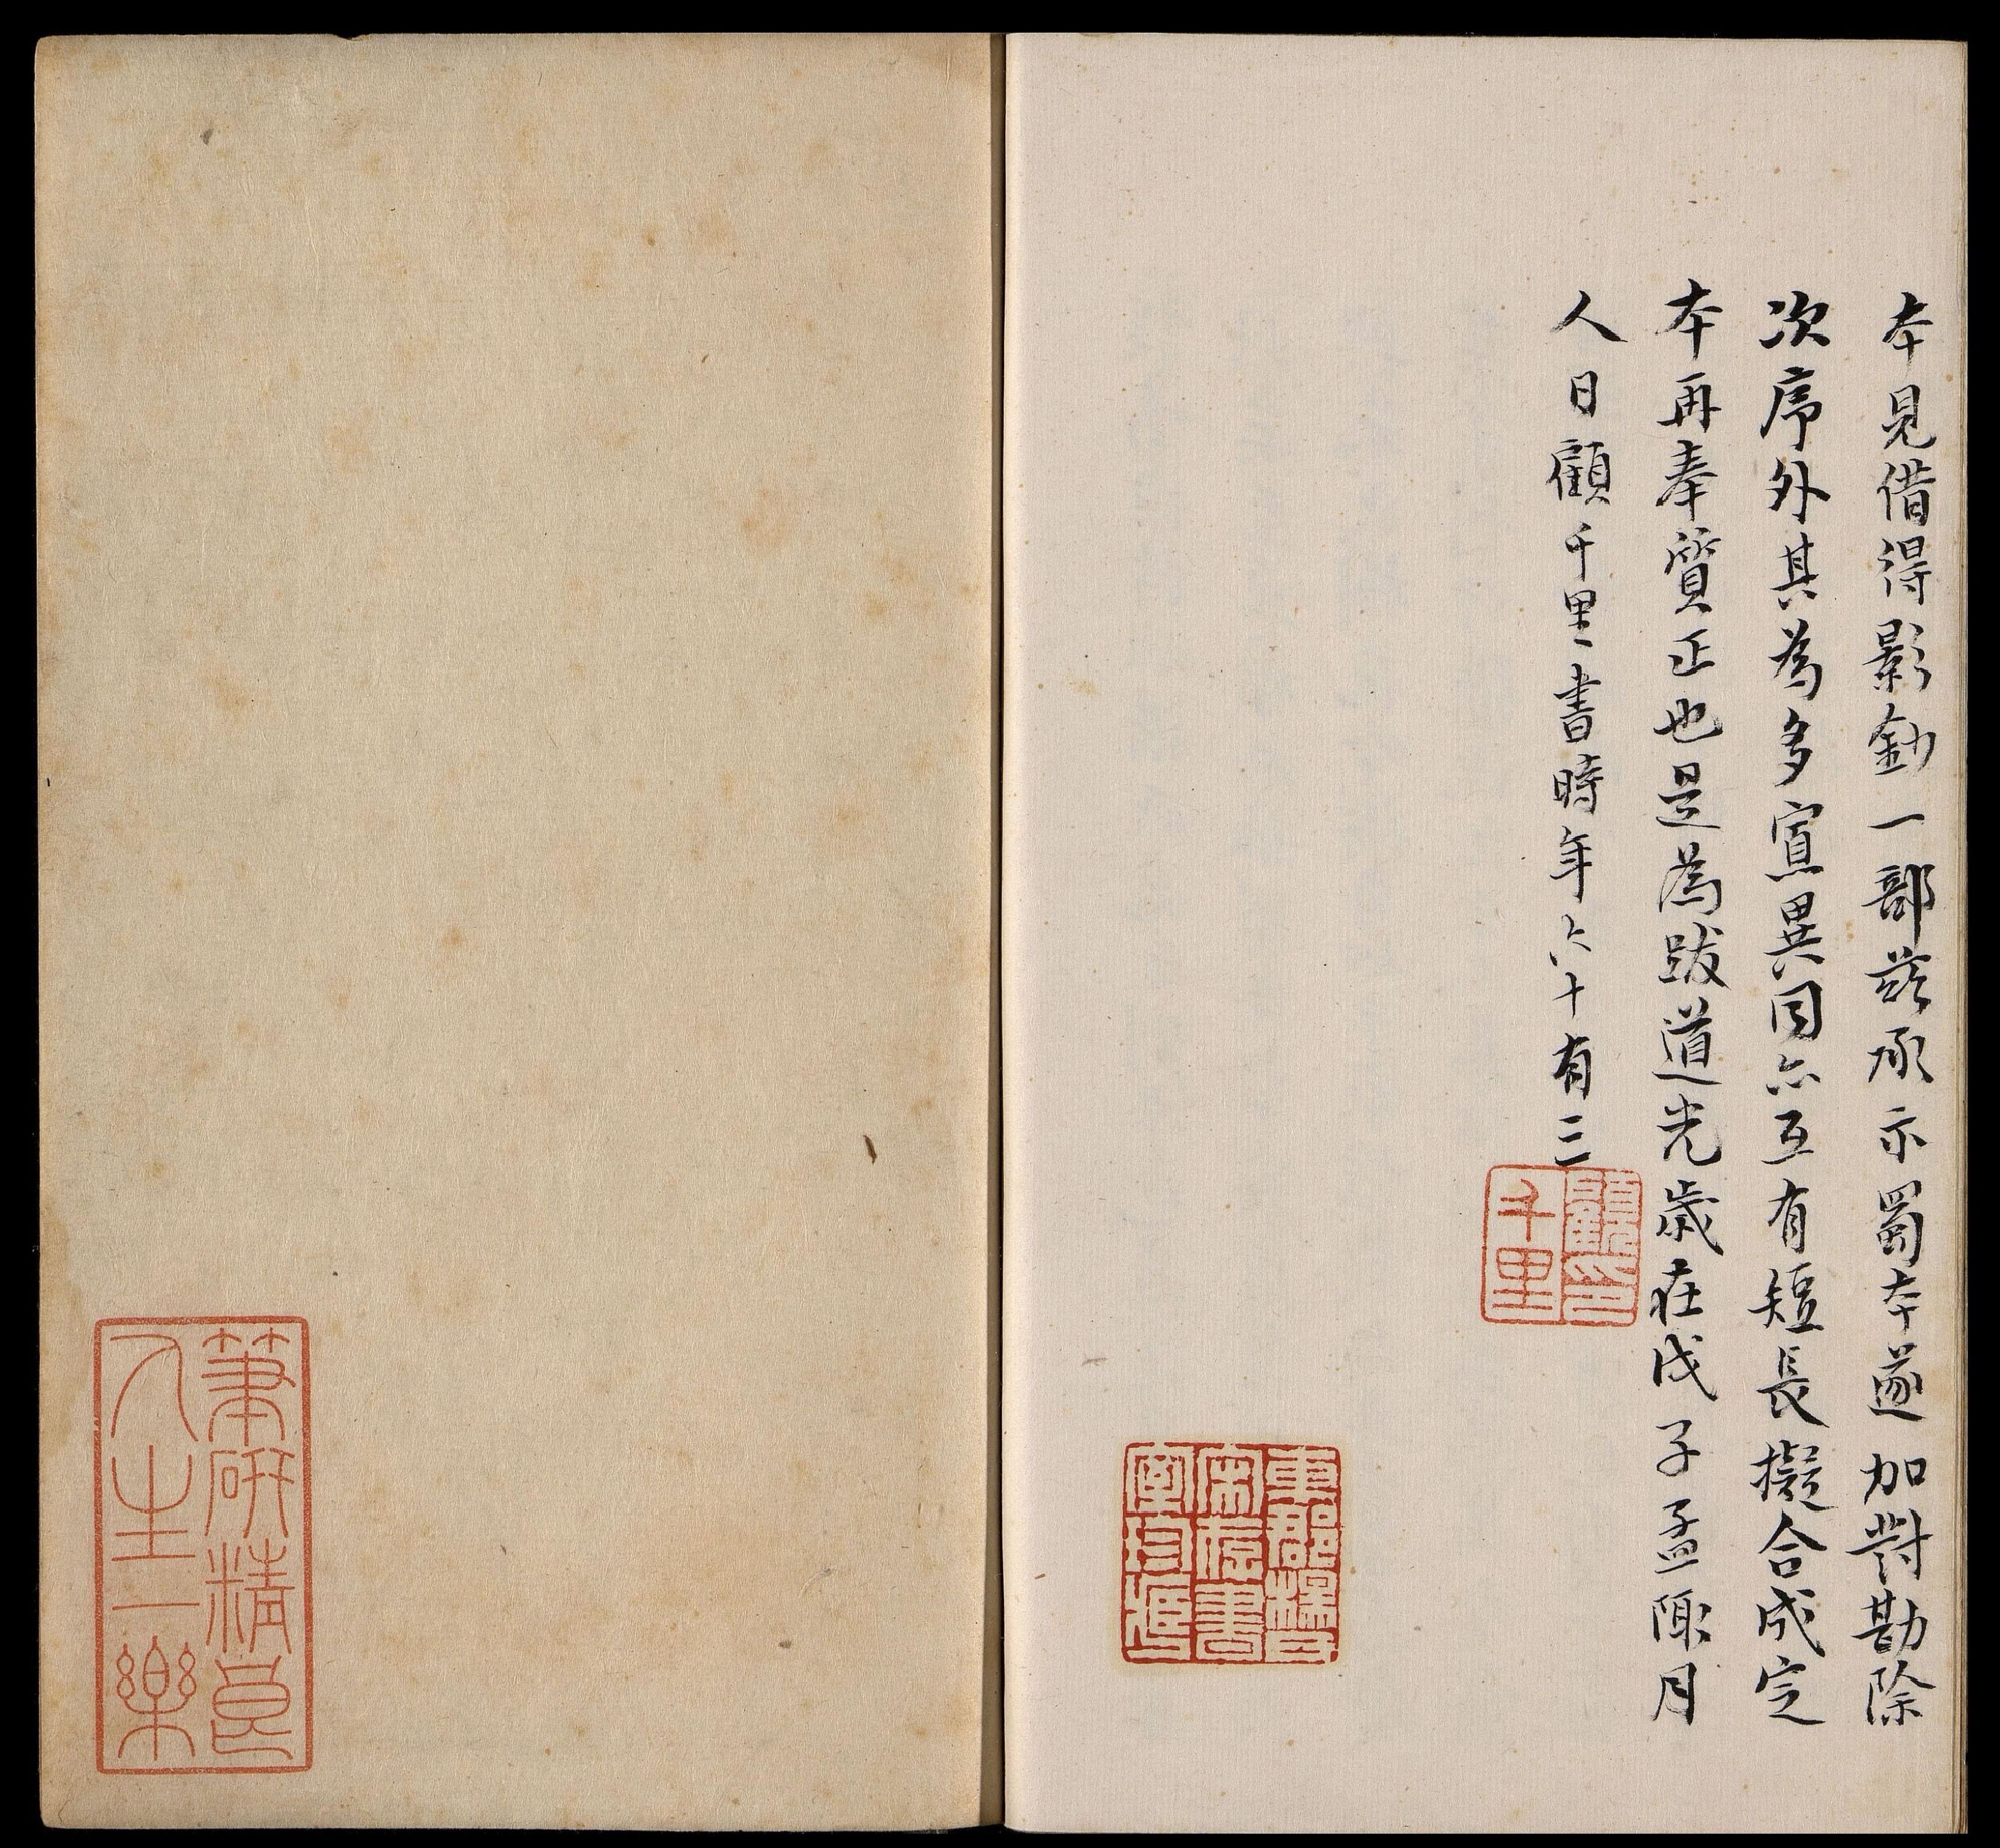 本見借得影鈔一部茲承示蜀本遂加對勘除
次序外其為多寡異同亦互有短長擬合成定
本再奉質正也是為跋道光歲在戊子孟陬月
人日顧千里書時年六十有三
顧印
千里
東郡楊氏
宋存書
室珍藏
筆研精良
人生一樂